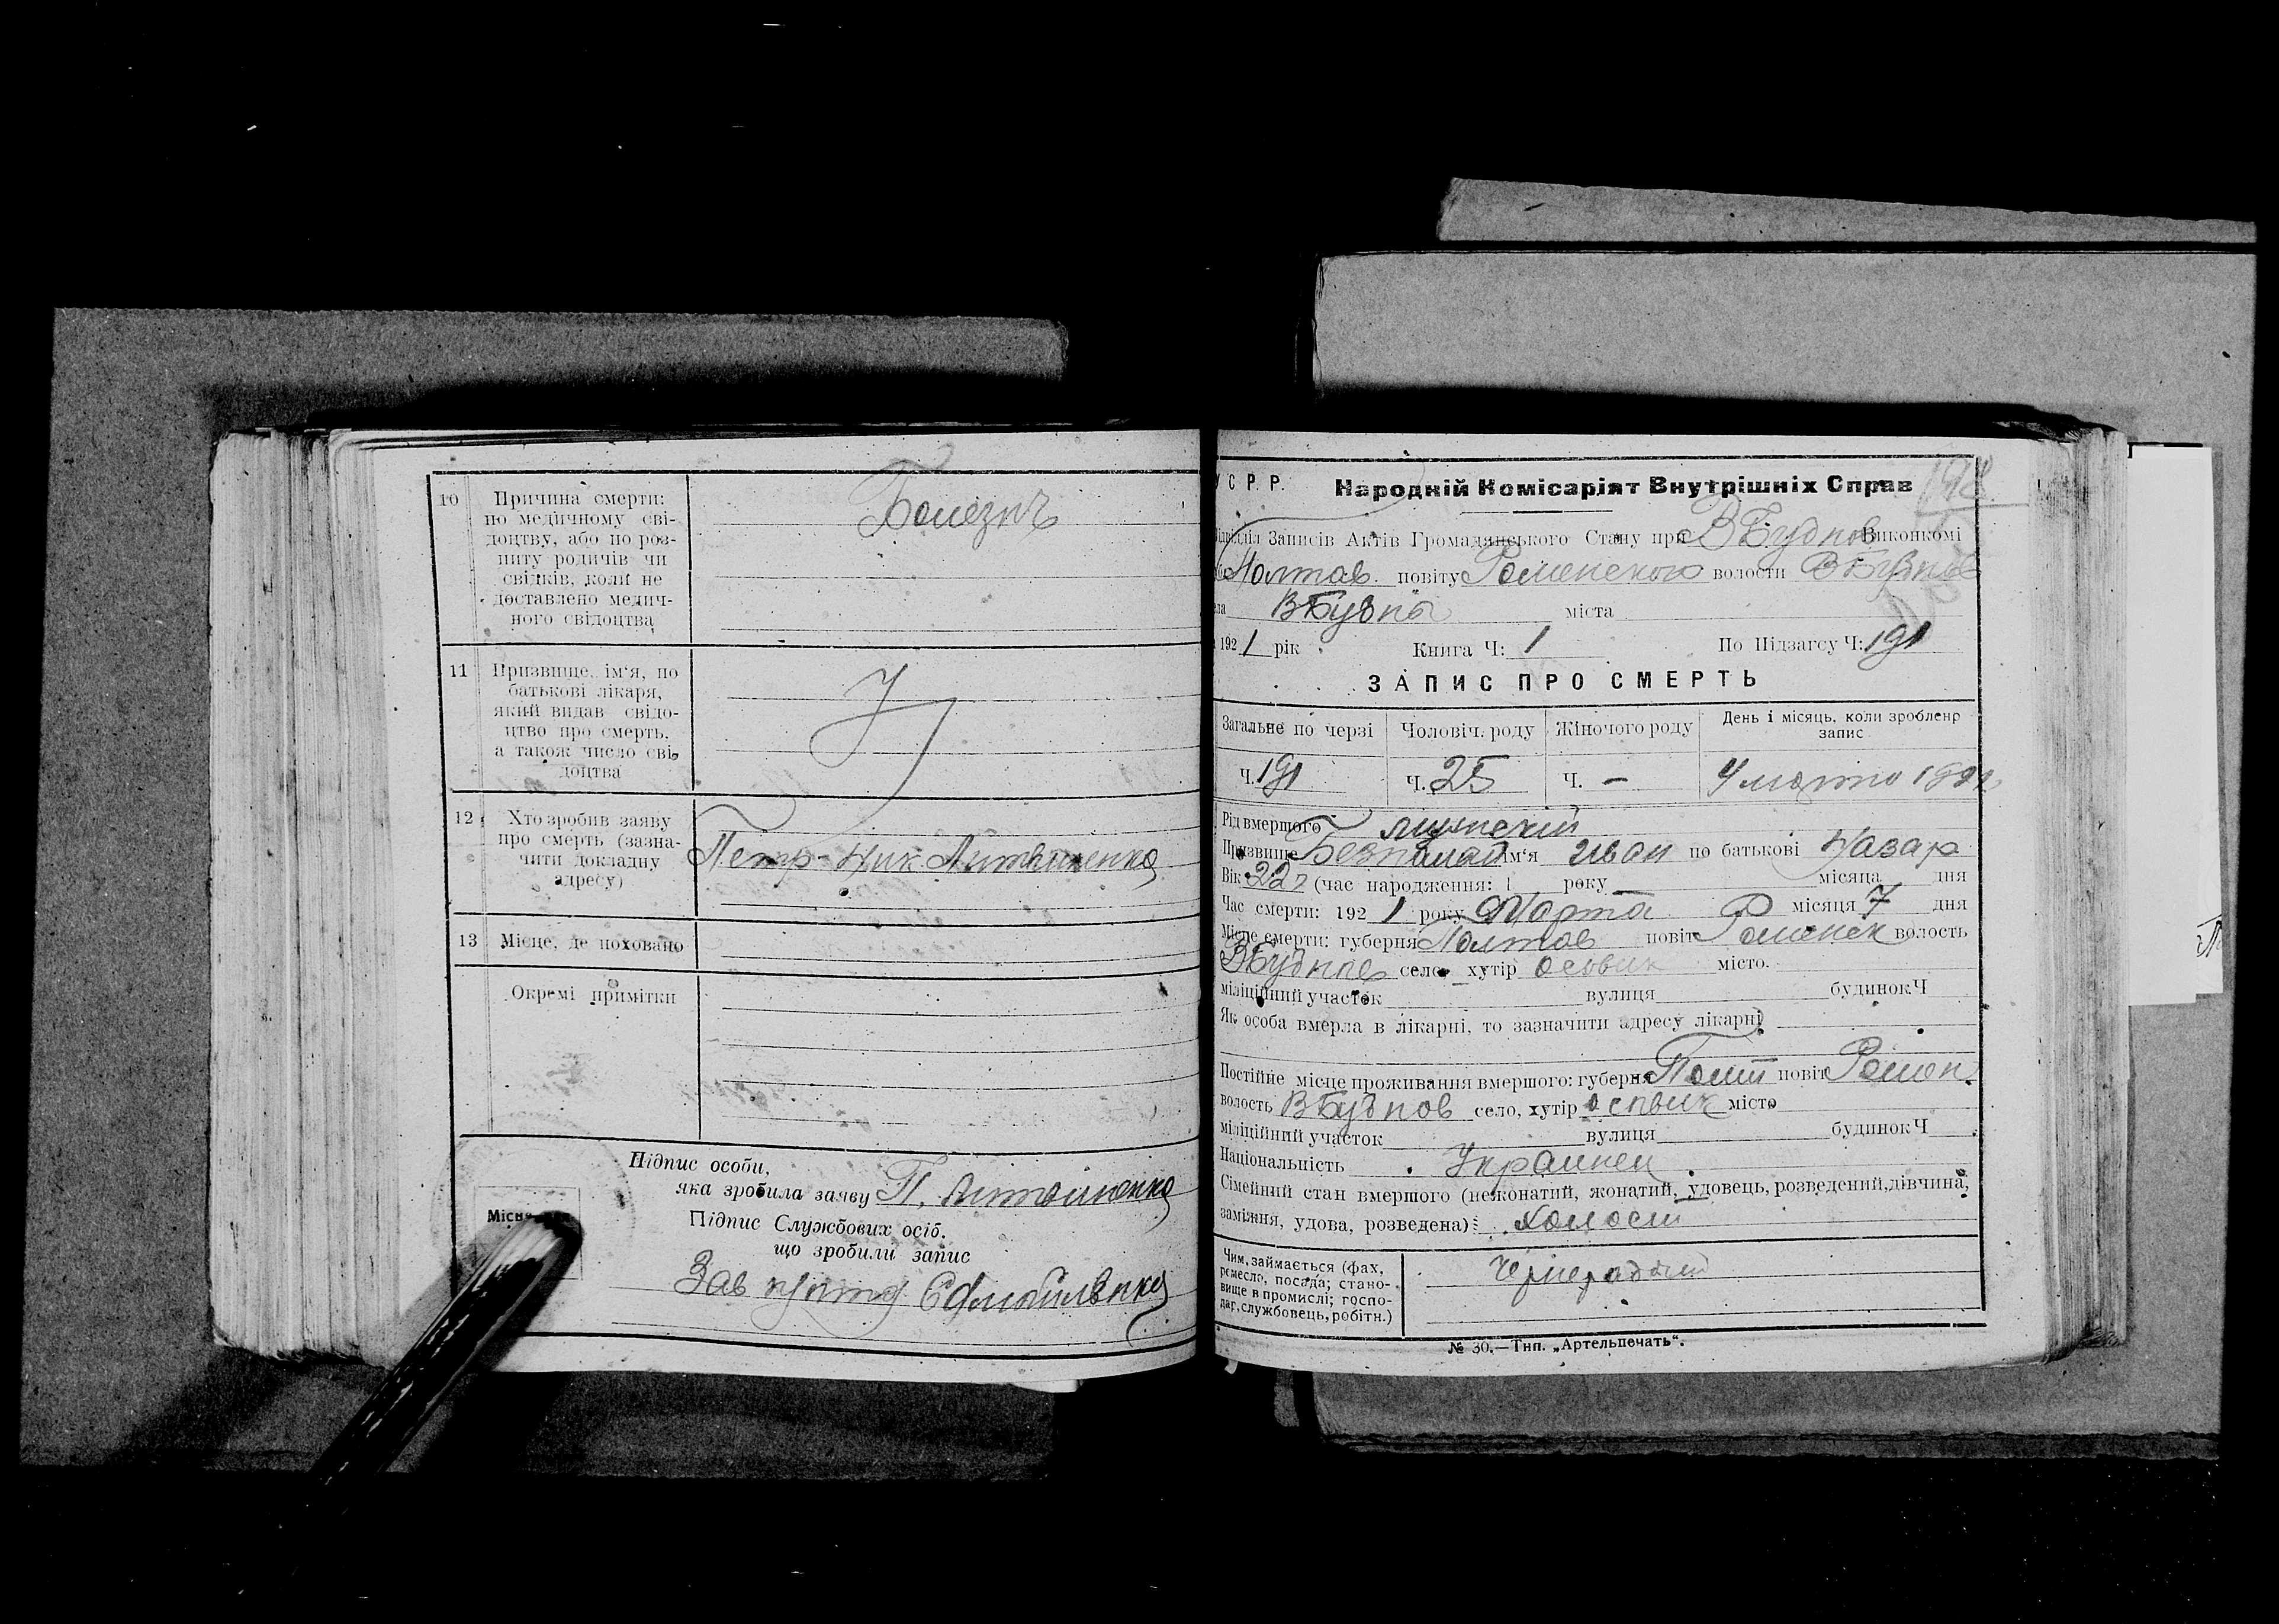 10 Причина смерти:
по медичному сві-
доцтву, або по роз-
питу родичів чи
свідків, коли не
доставлено медич-
ного свідоцтва
Болезнь
11 Призвище, ім‘я, по
батькові лікаря,
який видав свідо-
цтво про смерть,
а також число сві-
доцтва
12 Хто зробив заяву
про смерть (зазна-
чити докладну
адресу)
Петр Ник. Литвиненко
13 Місце, де поховано
Окремі примітки
Підпис особи,
яка зробила заяву П. Литвиненко
Підпис Службових осіб.
що зробили запис
Зав
Місце
У С Р. Р. Народній Комісаріят Внутрішніх Справ
198
Підвідділ Записів Актів Громадянського Стану при В Будков Виконкомі
Полтав. повіту Роменского волости
села міста
192 1 рік Книга Ч: 1 По Підзагсу Ч: 191
ЗАПИС ПРО СМЕРТЬ
Загальне по черзі Чоловіч. роду Жіночого роду День і місяць, коли зроблено
запис
Ч. 191 Ч. 25 Ч. — марта
Рід вмершого мужский
Призвище Безпалад ім‘я Иван по батькові Назар
Вік 22 г (час народження: 1 року місяца дня
Час смерти: 192 1 року Марта місяця 7 дня
Місце смерти: губерня Полтав повіт Роменск волость
село, хутір Осовик місто.
міліційний участок вулиця будинок Ч
Як особа вмерла в лікарні, то зазначити адресу лікарні
Постійне місце проживання вмершого: губерня Полт повіт Ромен.
волость село, хутір місто
міліційний участок вулиця будинок Ч
Національність Украинец
Сімейний стан вмершого (нежонатий, жонатий, удовець, розведений, дівчина,
заміжня, удова, розведена): Холост
Чим займається (фах,
ремесло, посада; стано-
вище в промислі; госпо-
дар, службовець, робітн.)
№ 30.—Тип. „Артельпечать“.